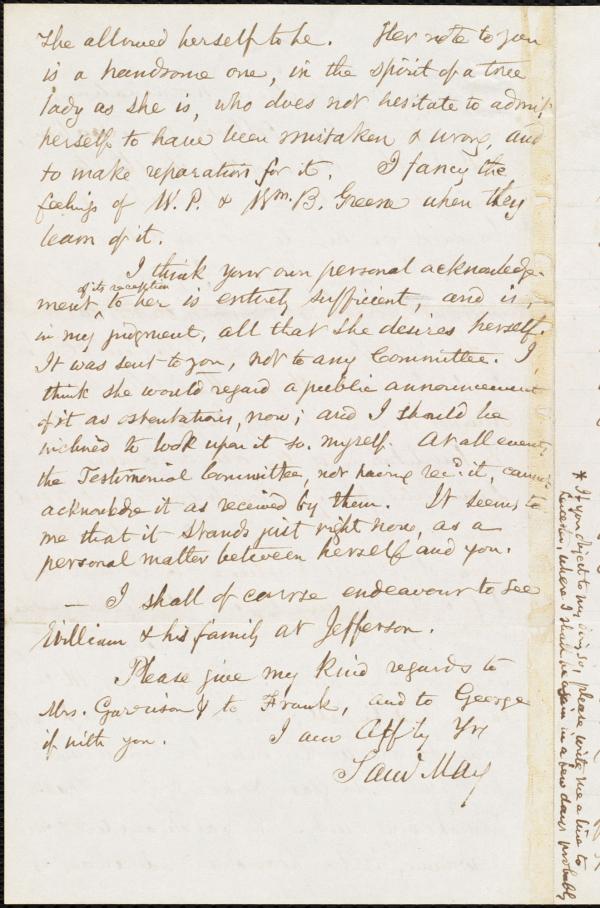 she allowed herself to be. Her note to you
is a handsome one, in the spirit of a true
lady as she is, who does not hesitate to admit
herself to have been mistaken & wrong, and
to make reparation for it. I fancy the
feelings of W. P. & Wm. B. Greene when they
learn of it.
I think your own personal acknowledge-
ment of its reception to her is entirely sufficient, and is,
in my judgment, all that she desires herself.
It was sent to you, not to any Committee. I
think she would regard a public announcement
of it as ostentatious, now; and I should be
inclined to look upon it so myself. At all events
the Testimonial Committee, not having recd. it, cannot
acknowledge it as received by them. It seems to
me that it stands just right now, as a
personal matter between herself and you.
— I shall of course endeavour to see
William & his family at Jefferson.
Please give my kind regards to
Mrs. Garrison & to Frank, and to George
if with you. I am Affly Yrs
Saml May
* If you object to my doing so, please write me a line to
Leicester, where I shall be again in a few days probably